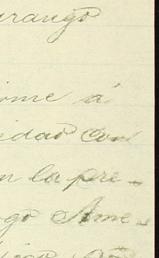 urango
ome á
idad con
n la pre-
go Ame-